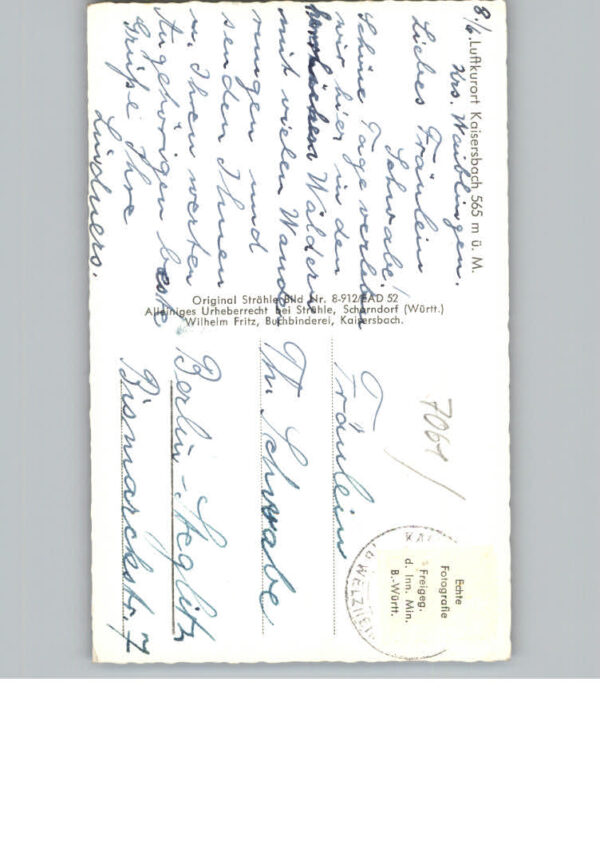 8/6. Luftkurort Kaisersbach 565 m ü. M.
Krs. Waiblingen.
Liebes Fräulein
Schwabe!
Schöne Tage verleben
wir hier in den
Wäldern
mit vielen Wande-
rungen und
senden Ihnen
u. Ihren werten
Angehörigen beste
Grüße Ihre
Lindners.
Original Strähle Bild Nr. 8-912/FAD 52
Alleiniges Urheberrecht bei Strähle, Schorndorf (Württ.)
Wilhelm Fritz, Buchbinderei, Kaisersbach.
7061
Echte
Fotografie
Freigeg.
d. Inn. Min.
B.-Württ.
WELZHEIM
Fräulein
Th. Schwabe
Berlin-Steglitz
Bismarckstr. 7